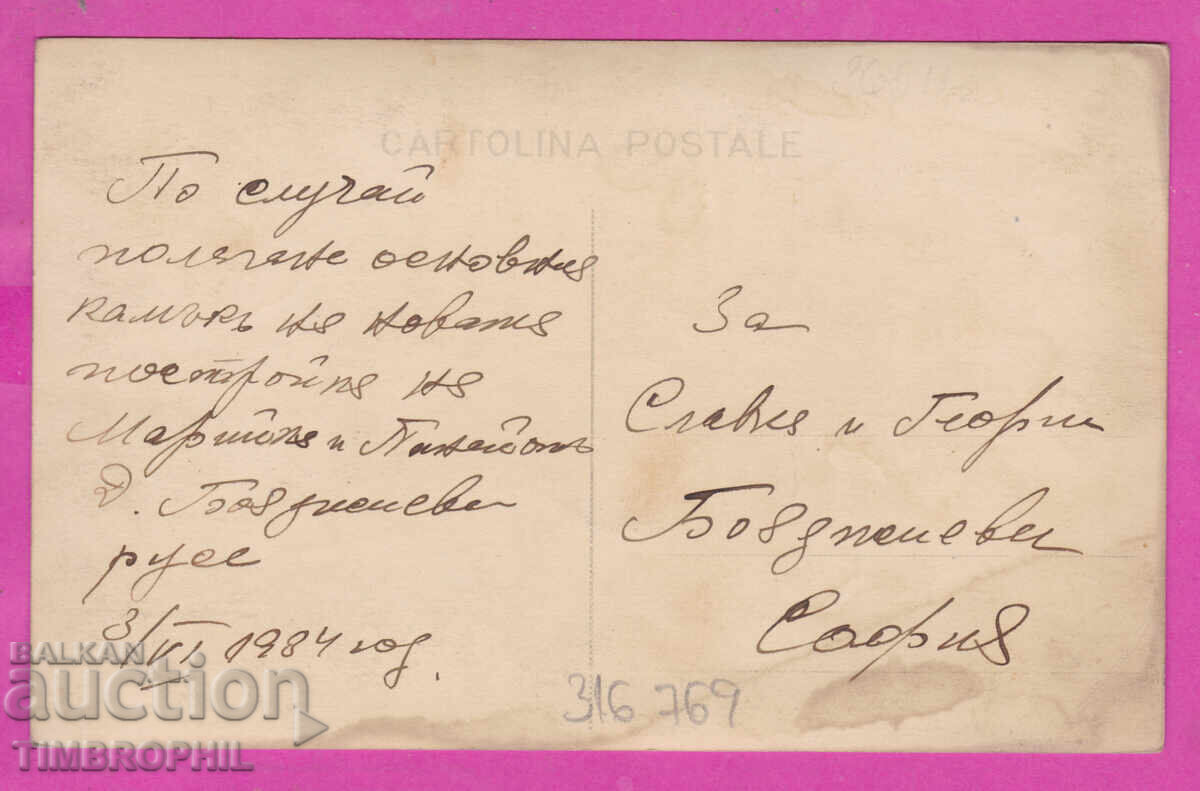 CARTOLINA POSTALE
По случай
полагане основния
камъкъ на новата
постройка на
Марийка и Панайотъ
Д. Бояджиеви
русе
3/VI 1934 год.
За
Славка и Георги
Бояджиеви
София
316 769
BALKAN
auction
TIMBROPHIL